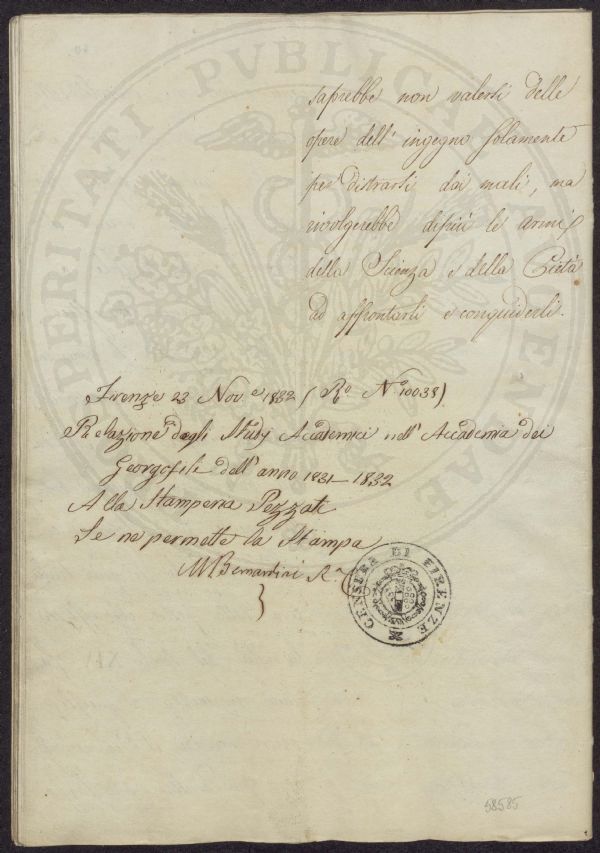 saprebbe non valersi delle
opere dell' ingegno solamente
per distrarsi dai mali, ma
rivolgerebbe dipiù le armi
della Scienza e della Pietà
ad affrontarli e conquiderli.
Firenze 23 Nov.e 1832 (R.o N.o 10038)
Relazione degli Studj Accademici nell' Accademia dei
Georgofili dell' anno 1831-1832
Alla Stamperia Pezzati
Se ne permette la Stampa
M Bernardini R.
CENSURA DI FIRENZE
58585
PROSPERITATI PUBLICAE AUGENDAE